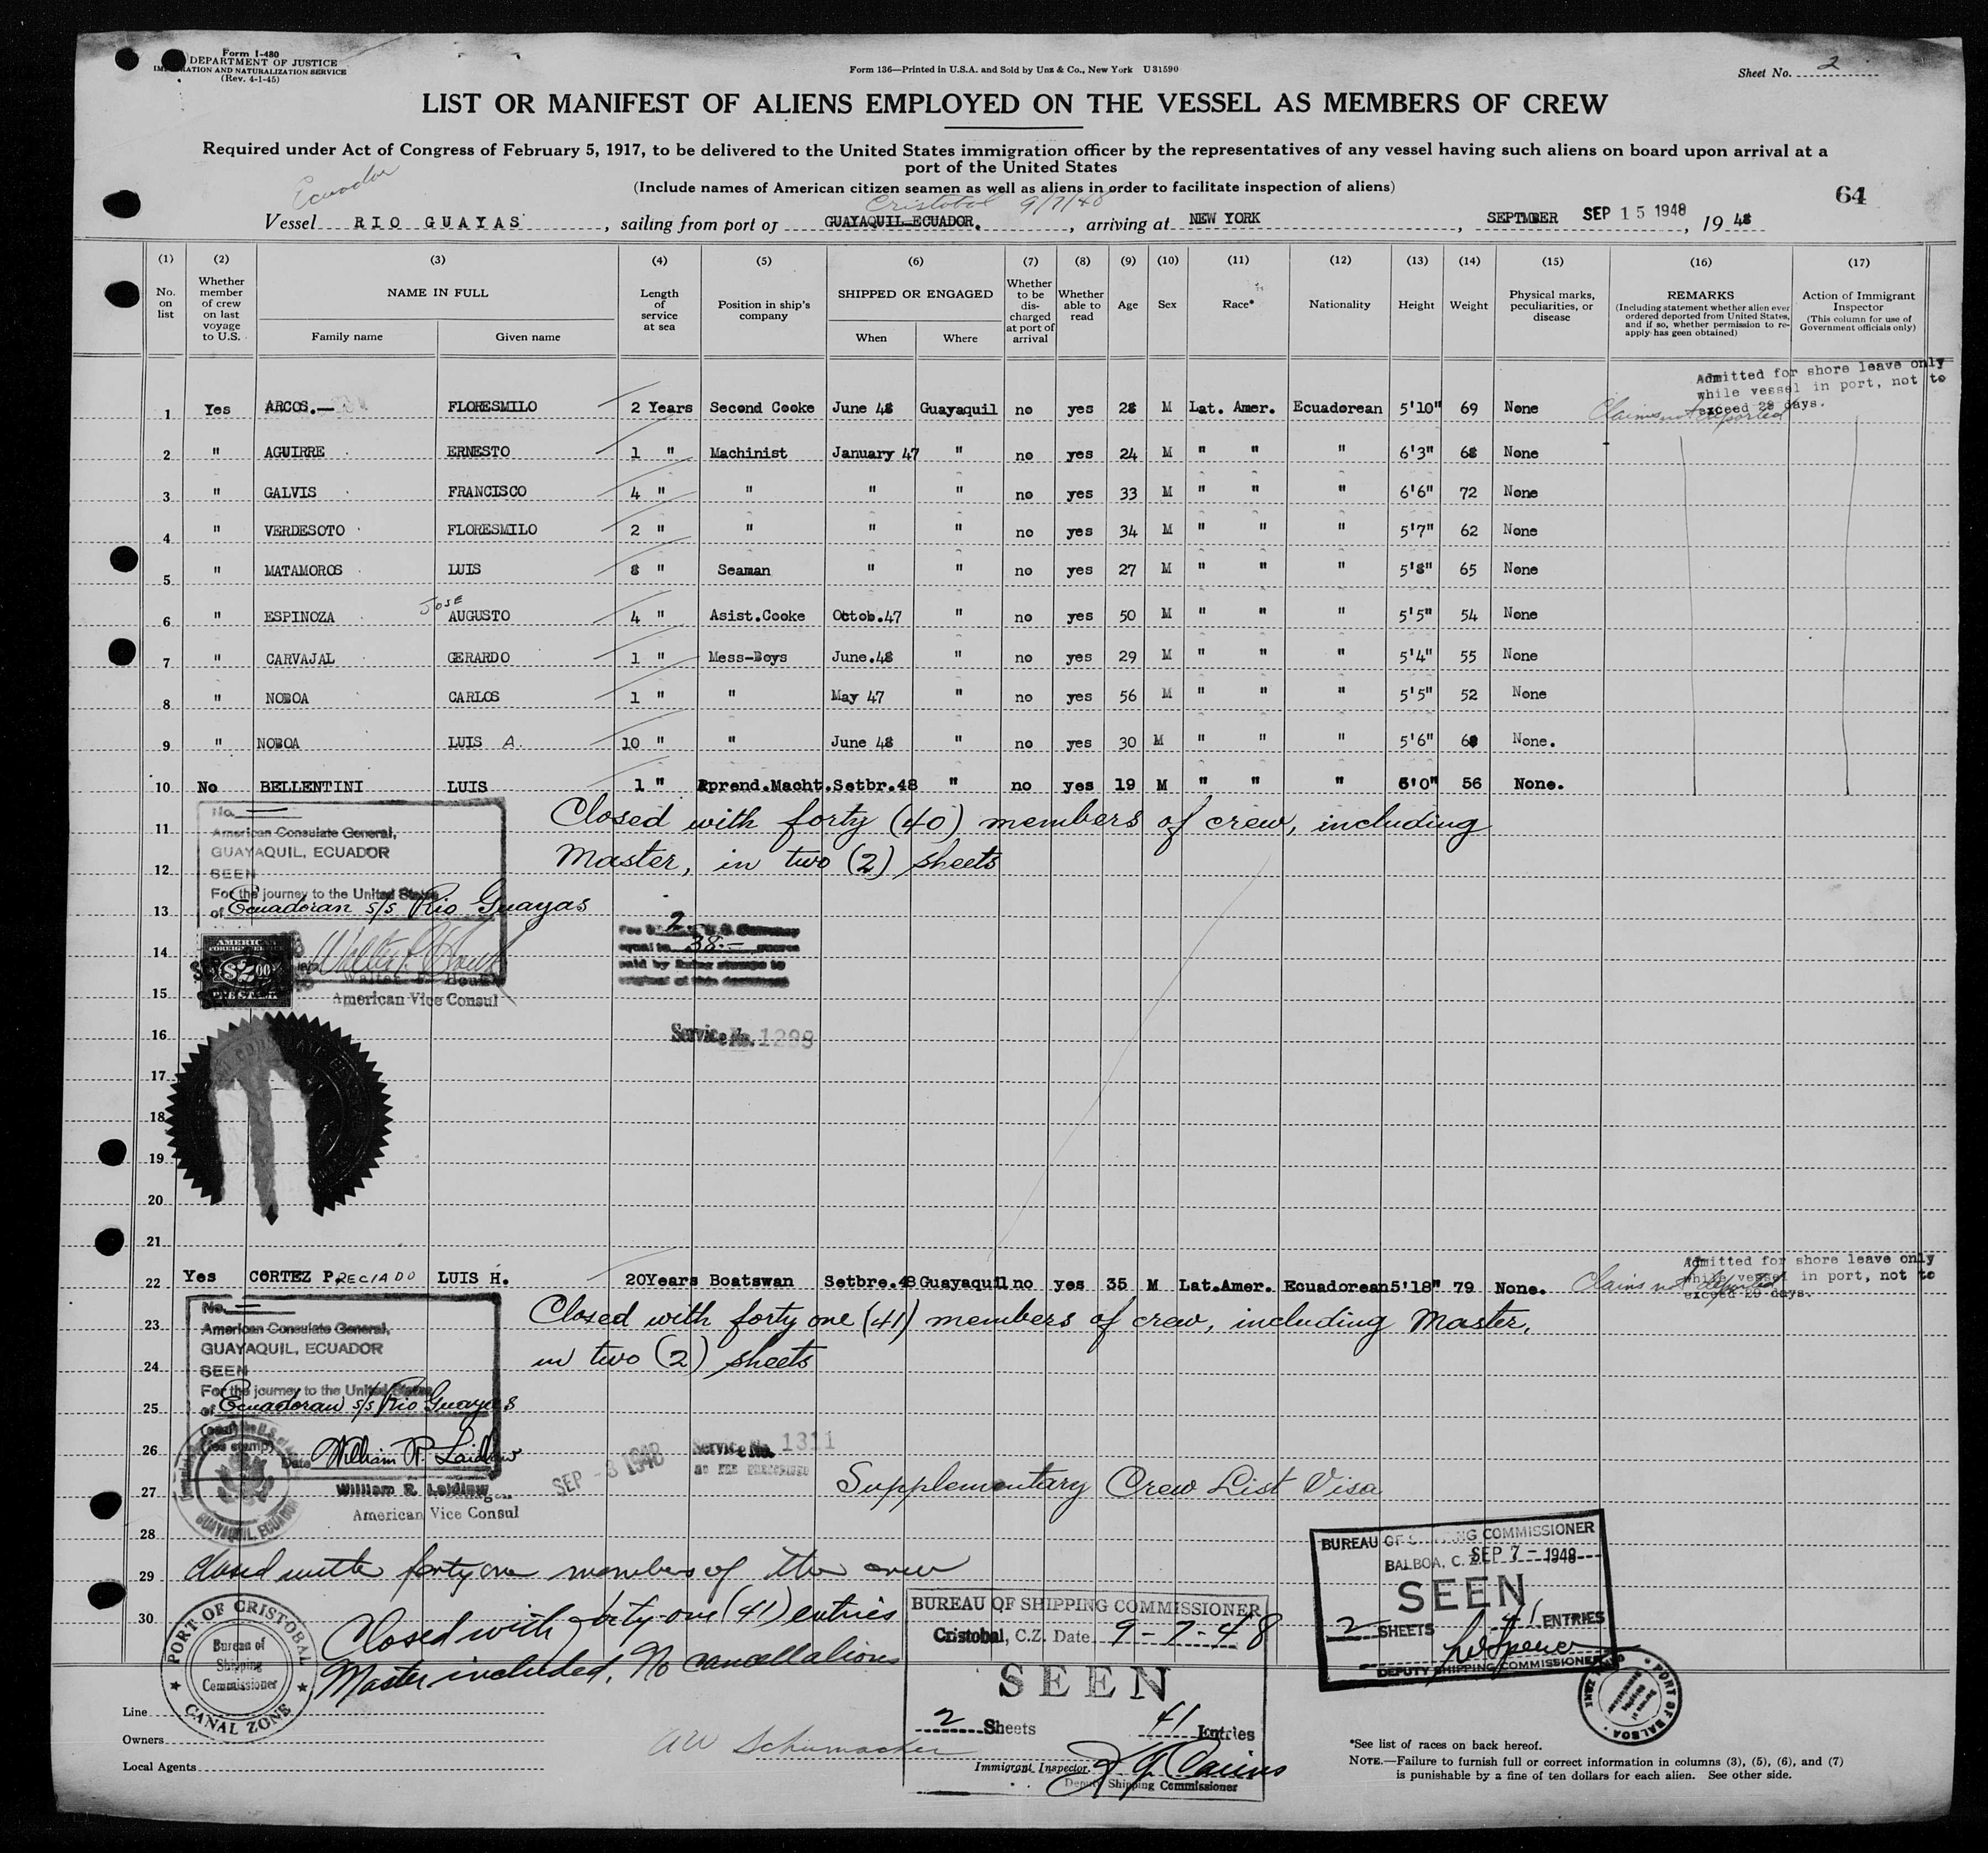 Form I-480
DEPARTMENT OF JUSTICE
IMMIGRATION AND NATURALIZATION SERVICE
(Rev. 4-1-45)
Form 136—Printed in U.S.A. and Sold by Unz & Co., New York U31590
Sheet No. 2
LIST OR MANIFEST OF ALIENS EMPLOYED ON THE VESSEL AS MEMBERS OF CREW
Required under Act of Congress of February 5, 1917, to be delivered to the United States immigration officer by the representatives of any vessel having such aliens on board upon arrival at a
port of the United States
(Include names of American citizen seamen as well as aliens in order to facilitate inspection of aliens)
64
Ecuador
Cristobal 9/7/48
Vessel RIO GUAYAS, sailing from port of GUAYAQUIL-ECUADOR., arriving at NEW YORK, SEPTMBER SEP 15 1948, 1948
(1) (2) (3) (4) (5) (6) (7) (8) (9) (10) (11) (12) (13) (14) (15) (16) (17)
No. on list
Whether member of crew on last voyage to U.S.
NAME IN FULL
Family name
Given name
Length of service at sea
Position in ship's company
SHIPPED OR ENGAGED
When
Where
Whether to be discharged at port of arrival
Whether able to read
Age
Sex
Race*
Nationality
Height
Weight
Physical marks, peculiarities, or disease
REMARKS
(Including statement whether alien ever ordered deported from United States, and if so, whether permission to re-apply has geen obtained)
Action of Immigrant Inspector
(This column for use of Government officials only)
Admitted for shore leave only
while vessel in port, not to
exceed 29 days.
1 Yes ARCOS.— FLORESMILO 2 Years Second Cooke June 48 Guayaquil no yes 28 M Lat. Amer. Ecuadorean 5'10" 69 None Claims not deported
2 " AGUIRRE ERNESTO 1 " Machinist January 47 " no yes 24 M " " " 6'3" 68 None
3 " GALVIS FRANCISCO 4 " " " " no yes 33 M " " " 6'6" 72 None
4 " VERDESOTO FLORESMILO 2 " " " " no yes 34 M " " " 5'7" 62 None
5 " MATAMOROS LUIS 8 " Seaman " " no yes 27 M " " " 5'8" 65 None
6 " ESPINOZA JOSE AUGUSTO 4 " Asist.Cooke Octob.47 " no yes 50 M " " " 5'5" 54 None
7 " CARVAJAL GERARDO 1 " Mess-Boys June.48 " no yes 29 M " " " 5'4" 55 None
8 " NOBOA CARLOS 1 " " May 47 " no yes 56 M " " " 5'5" 52 None
9 " NOBOA LUIS A. 10 " " June 48 " no yes 30 M " " " 5'6" None.
10 No BELLENTINI LUIS 1 " Aprend.Macht. Setbr.48 " no yes 19 M " " " 6'0" 56 None.
11
12
13
14
15
16
17
18
19
20
21
Closed with forty (40) members of crew, including
Master, in two (2) sheets
No. —
American Consulate General,
GUAYAQUIL, ECUADOR
SEEN
For the journey to the United States
of Ecuadoran s/s Rio Guayas
AMERICAN
FOREIGN SERVICE
$2.00
FEE STAMP
Walter
American Vice Consul
2 U.S. Currency
equal to 38.— sucres
Service No. 1298
Admitted for shore leave only
while vessel in port, not to
exceed 29 days.
22 Yes CORTEZ PRECIADO LUIS H. 20Years Boatswan Setbre.48 Guayaquil no yes 35 M Lat.Amer. Ecuadorean 5'18" 79 None. Claims not deported
23
24
25
26
27
28
29
30
Closed with forty one (41) members of crew, including Master,
in two (2) sheets
No. —
American Consulate General,
GUAYAQUIL, ECUADOR
SEEN
For the journey to the United States
of Ecuadoran s/s Rio Guayas
Date William R. Laidlaw
William R. Laidlaw
American Vice Consul
GUAYAQUIL, ECUADOR
SEP -3 1948
Service No. 1311
NO FEE PRESCRIBED
Supplementary Crew List Visa
closed with forty one members of the crew
Closed with forty-one (41) entries
Master included. No cancellations
PORT OF CRISTOBAL
Bureau of
Shipping
Commissioner
CANAL ZONE
BUREAU OF SHIPPING COMMISSIONER
Cristobal, C.Z. Date 9-7-48
SEEN
2 Sheets 41 Entries
Deputy Shipping Commissioner
BUREAU OF SHIPPING COMMISSIONER
BALBOA, C. Z. SEP 7 - 1948
SEEN
2 SHEETS 41 ENTRIES
DEPUTY SHIPPING COMMISSIONER
PORT OF BALBOA
Line
Owners
Local Agents
AW Schumacher
Immigrant Inspector.
*See list of races on back hereof.
NOTE.—Failure to furnish full or correct information in columns (3), (5), (6), and (7)
is punishable by a fine of ten dollars for each alien. See other side.